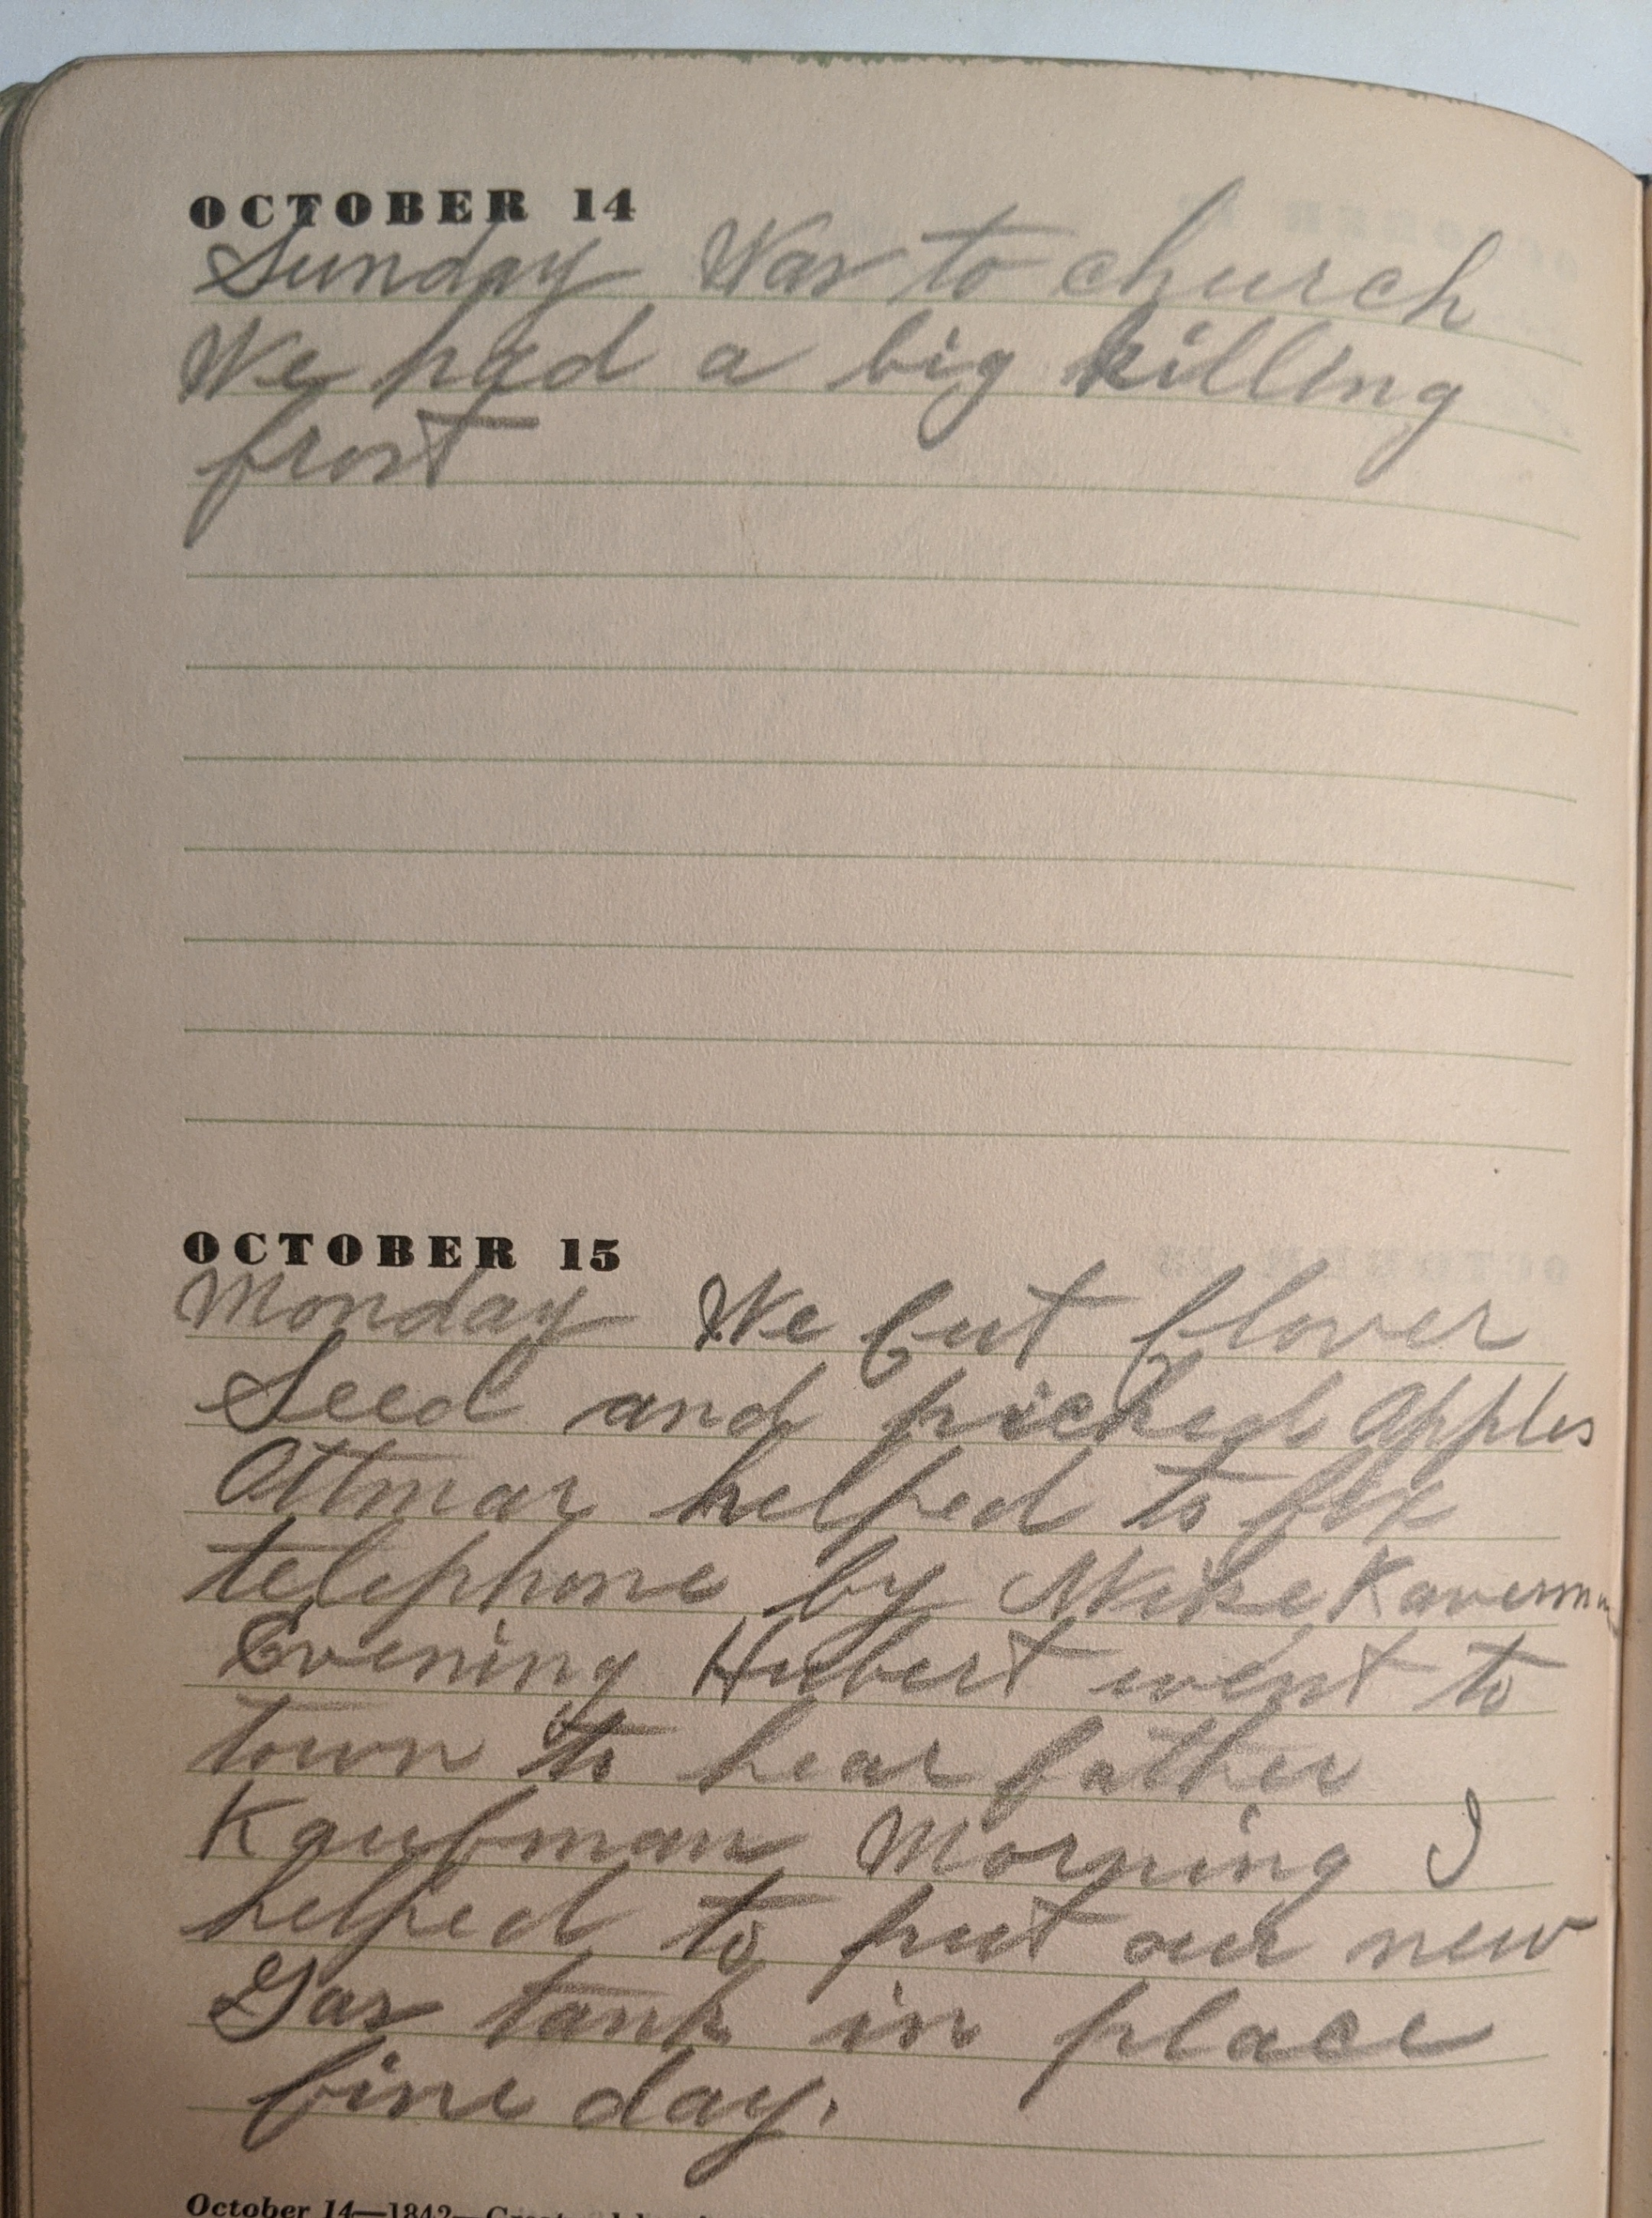 OCTOBER 14
Sunday Was to church
We had a big killing
frost
OCTOBER 15
Monday We cut clover
Seed and picked Apples
Ottmar helped to fix
telephone by Mike Kaverman
Evening Hubert went to
town to hear father
Kaufman Morning I
helped to put our new
Gas tank in place
fine day.
October 14—1842—